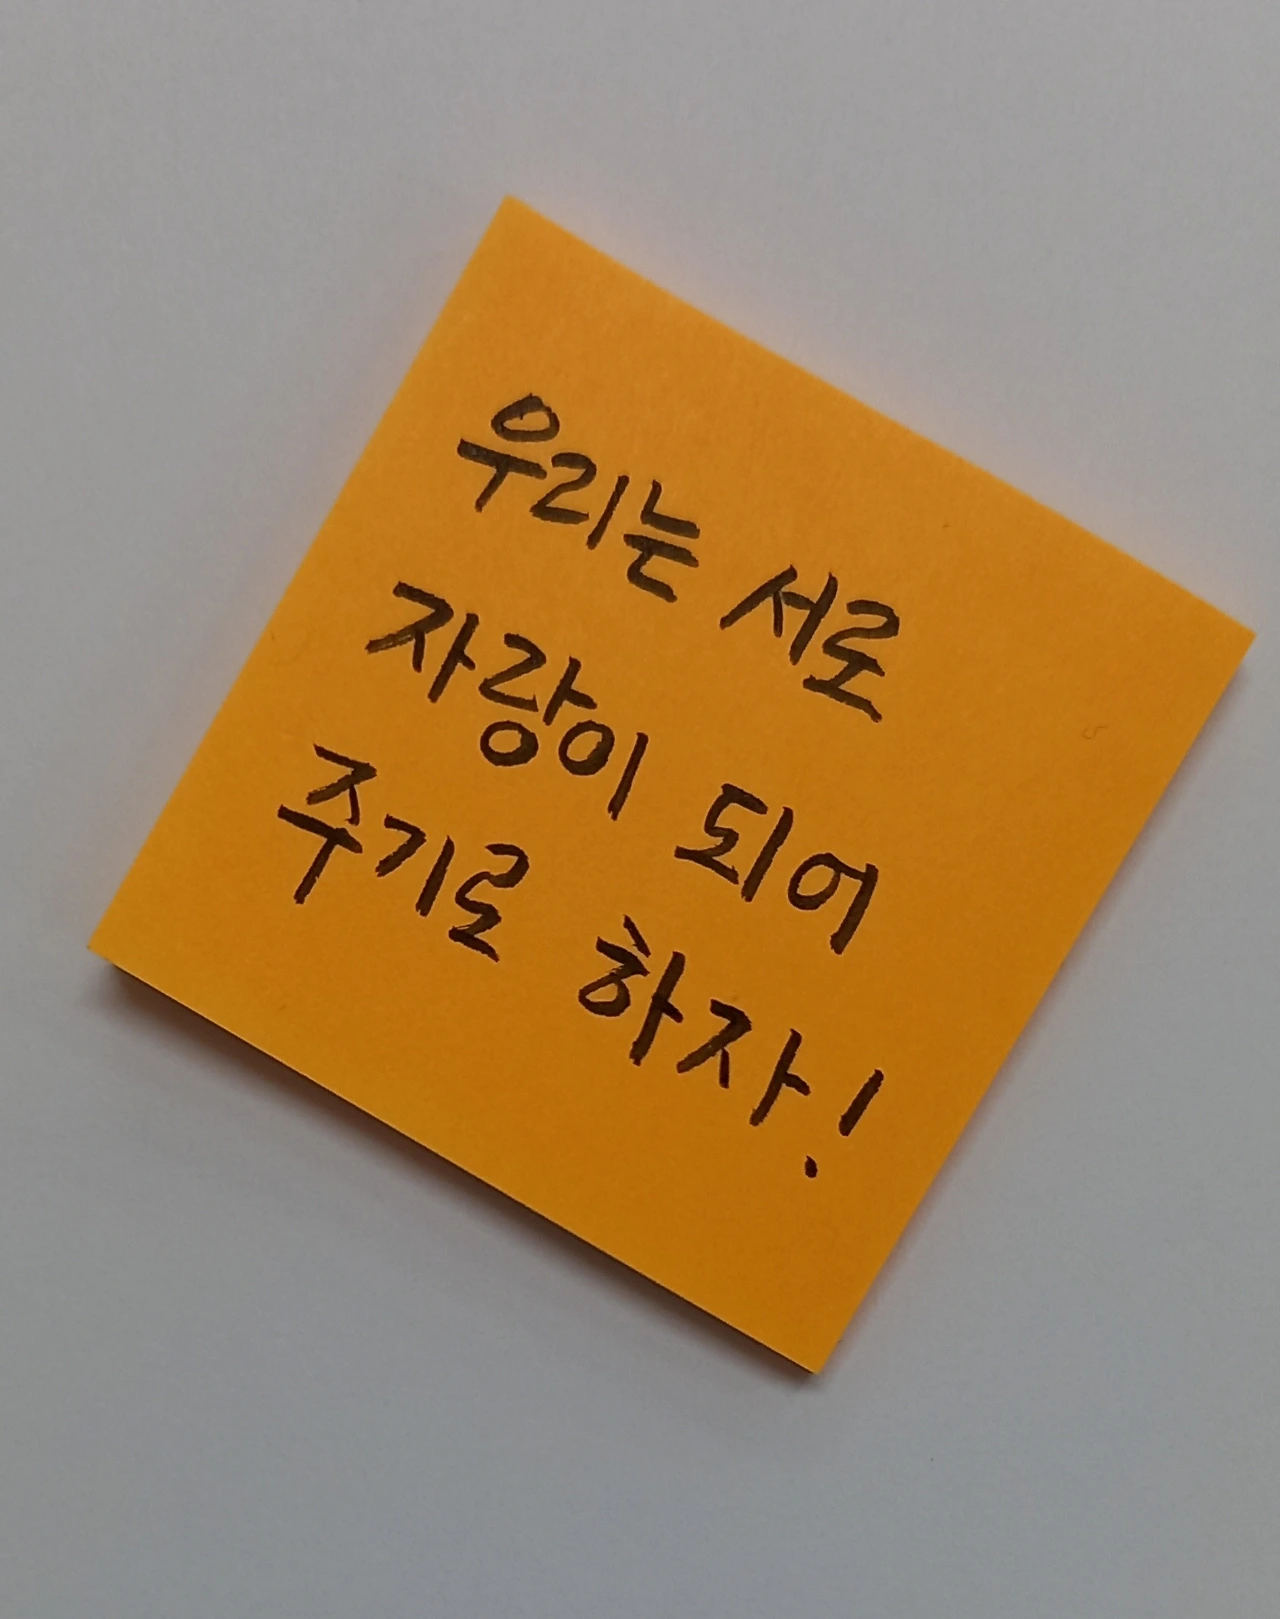 우리는 서로
자랑이 되어
주기로 하자!